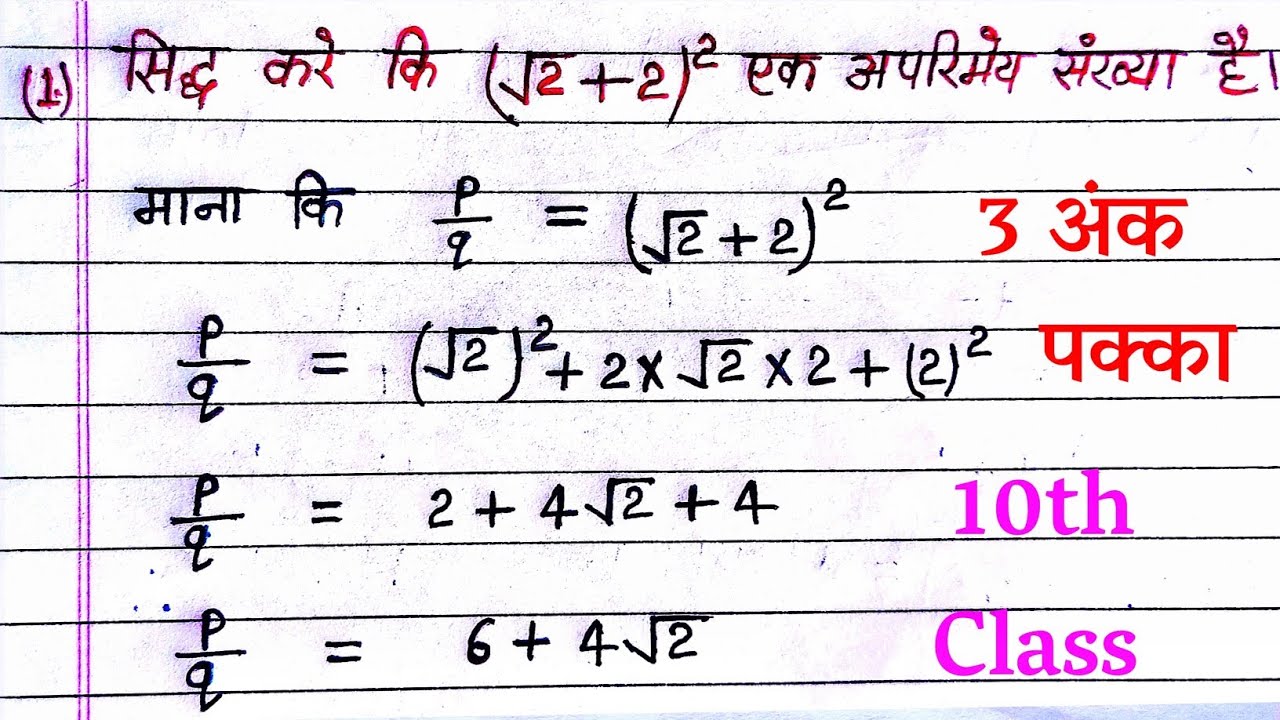 (1.) सिद्ध करे कि (√2+2)² एक अपरिमेय संख्या है।
माना कि p/q = (√2+2)² 3 अंक
p/q = (√2)²+2×√2×2+(2)² पक्का
p/q = 2+4√2+4 10th
p/q = 6+4√2 Class